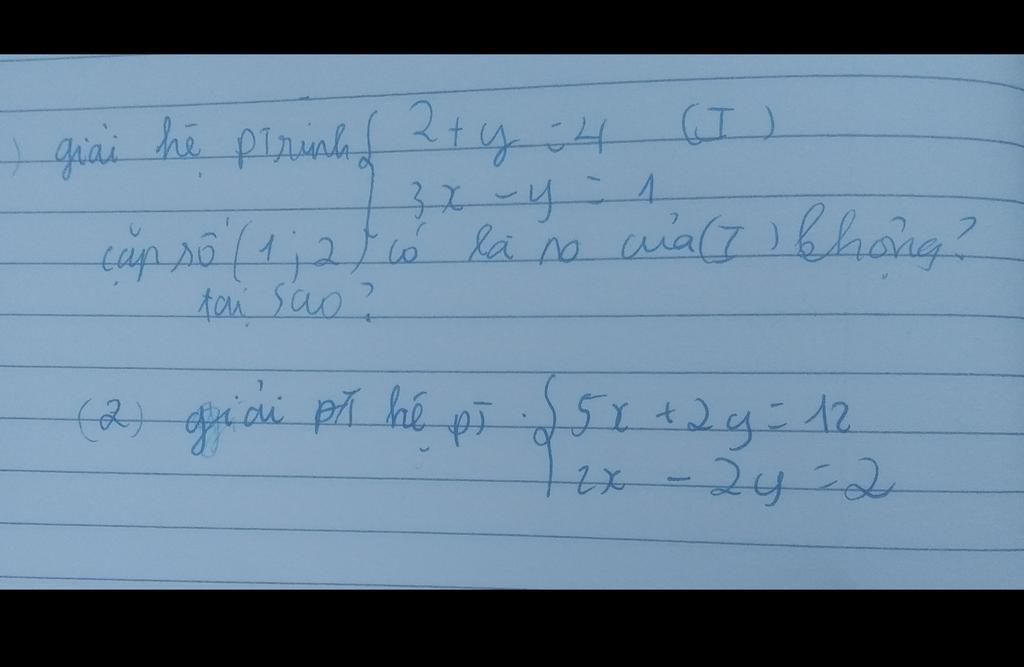 ) giải hệ pTrinh { 2 + y = 4 (I)
3x - y = 1
cặp số (1; 2) có là no của (I) không?
tại sao?
(2) giải pT hệ pT { 5x + 2y = 12
2x - 2y = 2